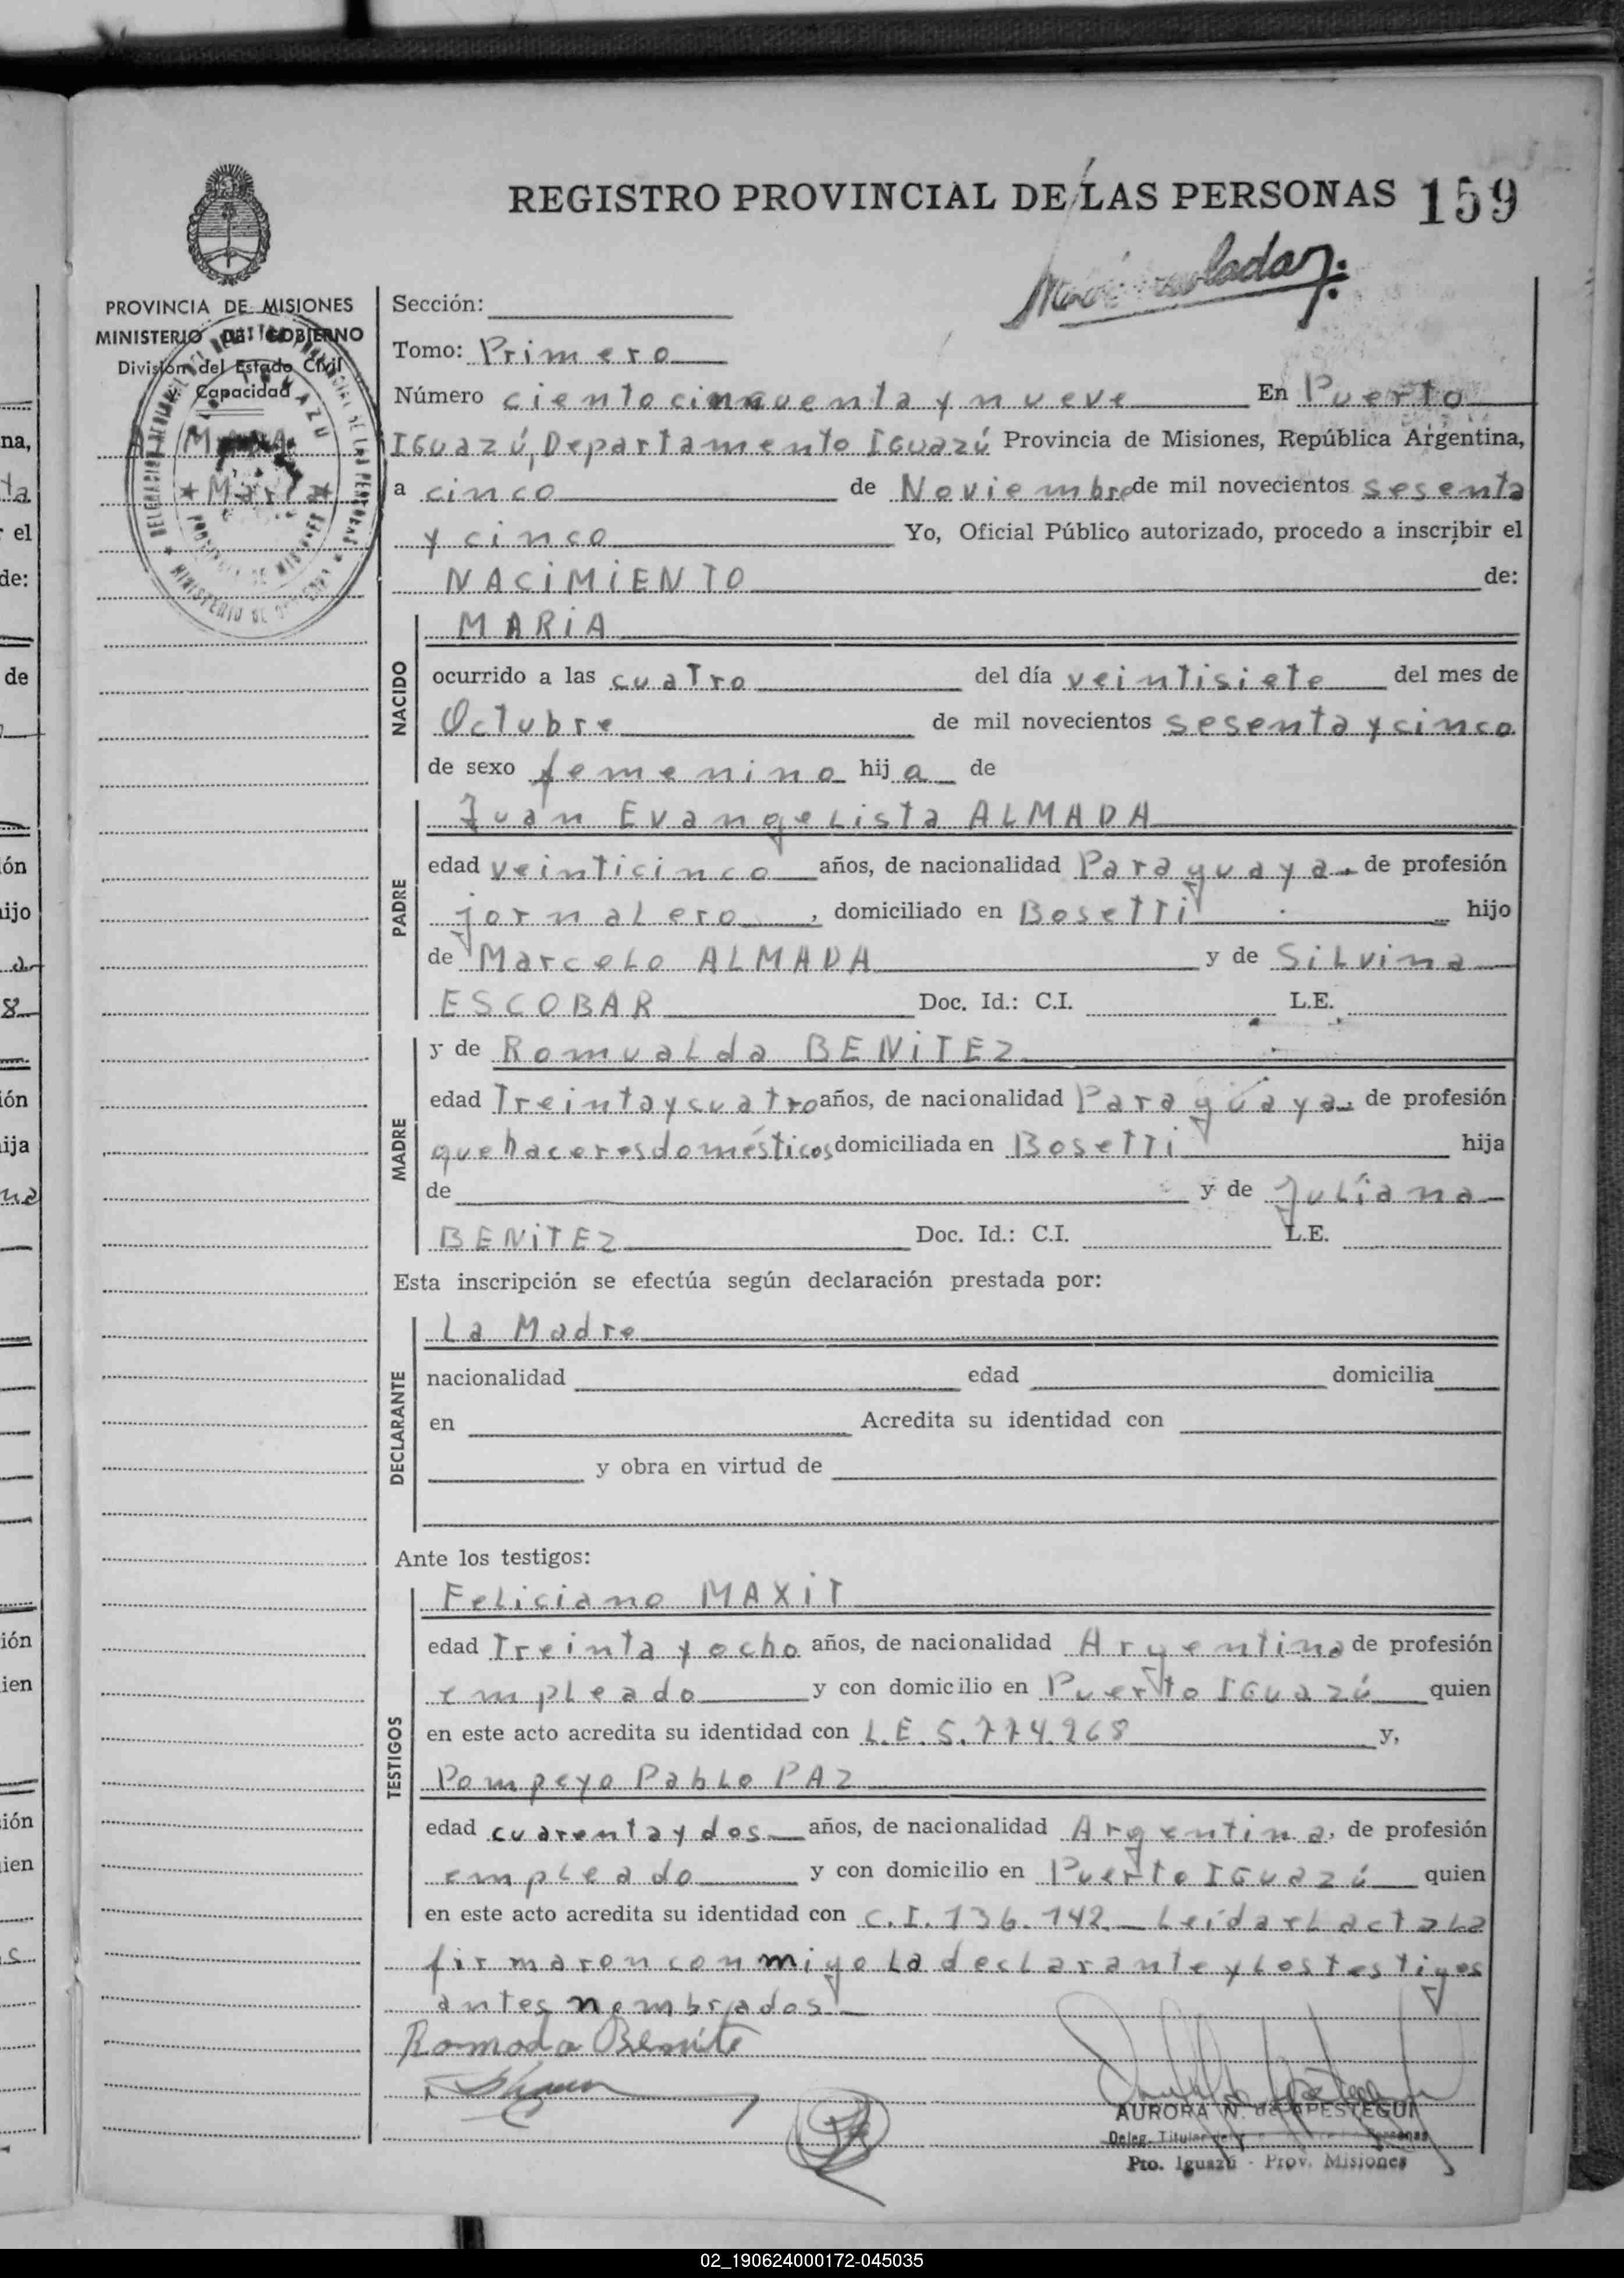 REGISTRO PROVINCIAL DE LAS PERSONAS 159
PROVINCIA DE MISIONES
MINISTERIO DE GOBIERNO
División del Estado Civil
y Capacidad
ALMADA
Maria
Sección:
Tomo: Primero
Número ciento cincuenta y nueve En Puerto
IGuazú, Departamento IGuazú Provincia de Misiones, República Argentina,
a cinco de Noviembre de mil novecientos sesenta
y cinco Yo, Oficial Público autorizado, procedo a inscribir el
NACiMiENTO de:
NACIDO
MARiA
ocurrido a las cuatro del día veintisiete del mes de
Octubre de mil novecientos sesenta y cinco
de sexo femenino hija de
PADRE
Juan Evangelista ALMADA
edad veinticinco años, de nacionalidad Paraguaya. de profesión
jornalero, domiciliado en Bosetti hijo
de Marcelo ALMADA y de Silvina
ESCOBAR Doc. Id.: C.I. L.E.
MADRE
y de Romualda BENiTEZ
edad Treinta y cuatro años, de nacionalidad Paraguaya. de profesión
quehaceres domésticos domiciliada en Bosetti hija
de y de Juliana
BENiTEZ Doc. Id.: C.I. L.E.
Esta inscripción se efectúa según declaración prestada por:
DECLARANTE
La Madre
nacionalidad edad domicilia
en Acredita su identidad con
y obra en virtud de
Ante los testigos:
TESTIGOS
Feliciano MAXiT
edad Treinta y ocho años, de nacionalidad Argentina de profesión
empleado y con domicilio en Puerto IGuazú quien
en este acto acredita su identidad con L.E. 5.774.268 y,
Pompeyo Pablo PAZ
edad cuarenta y dos años, de nacionalidad Argentina, de profesión
empleado y con domicilio en Puerto IGuazú quien
en este acto acredita su identidad con C.I. 136.142 Leída el acta la
firmaron conmigo la declarante y los testigos
antes nombrados
Romoda Benite
AURORA N. de APESTEGUI
Deleg. Titular Personas
Pto. Iguazú - Prov. Misiones
02_190624000172-045035